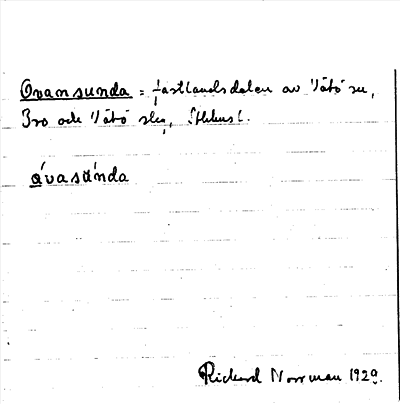 Ovansunda = fastlandsdelen av Vätö sn,
Bro och Vätö skg, Sthlms l.
ávasúnda
Richard Norrman 1929.